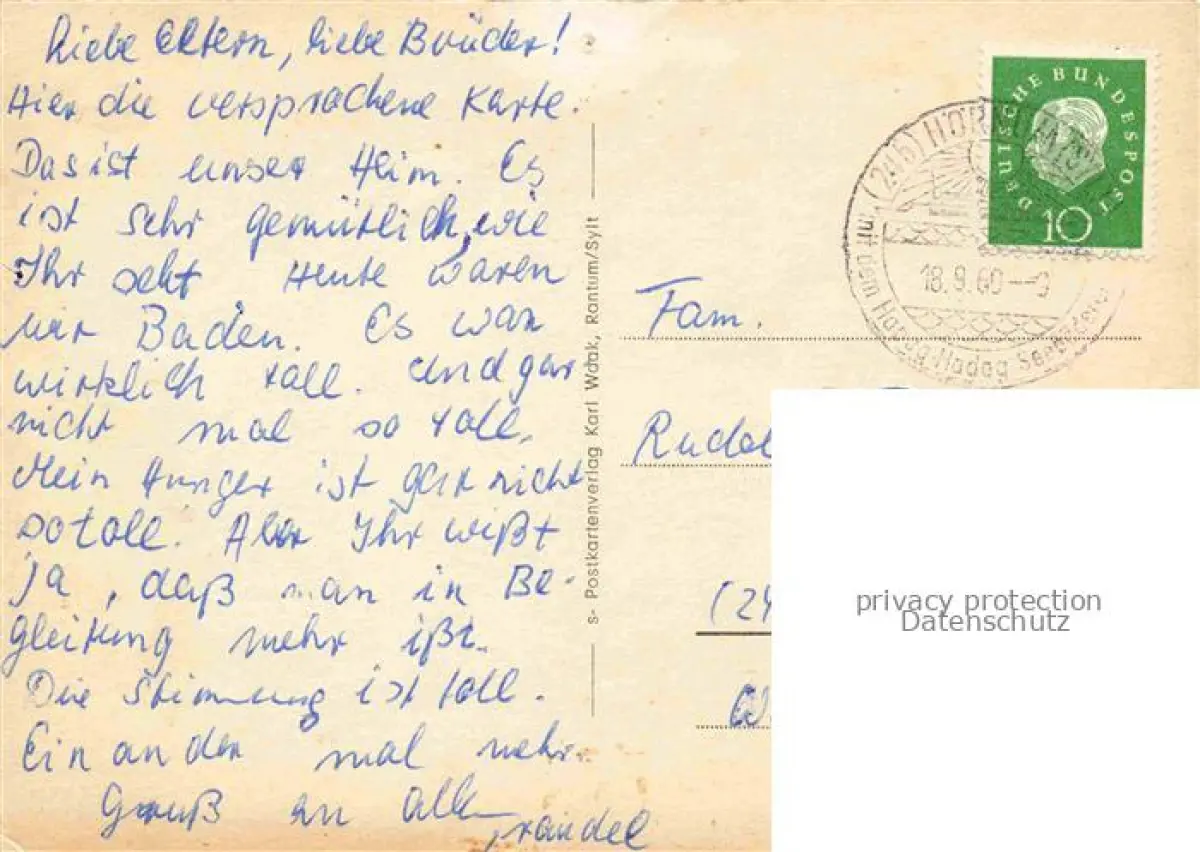 Liebe Eltern, liebe Brüder!
Hier die versprochene Karte.
Das ist unser Heim. Es
ist sehr gemütlich, wie
Ihr seht Heute waren
wir Baden. Es war
wirklich toll. Und gar
nicht mal so toll.
Mein Hunger ist gar nicht
so toll. Aber Ihr wißt
ja, daß man in Be-
gleitung mehr ißt.
Die Stimmung ist toll.
Ein andermal mehr.
Gruß an alle
s- Postkartenverlag Karl Wdak, Rantum/Sylt
DEUTSCHE BUNDESPOST
10
(24b) HÖRNUM
18.9.60
mit dem Hadag Seebäder
Fam.
Rudol
(24
privacy protection
Datenschutz